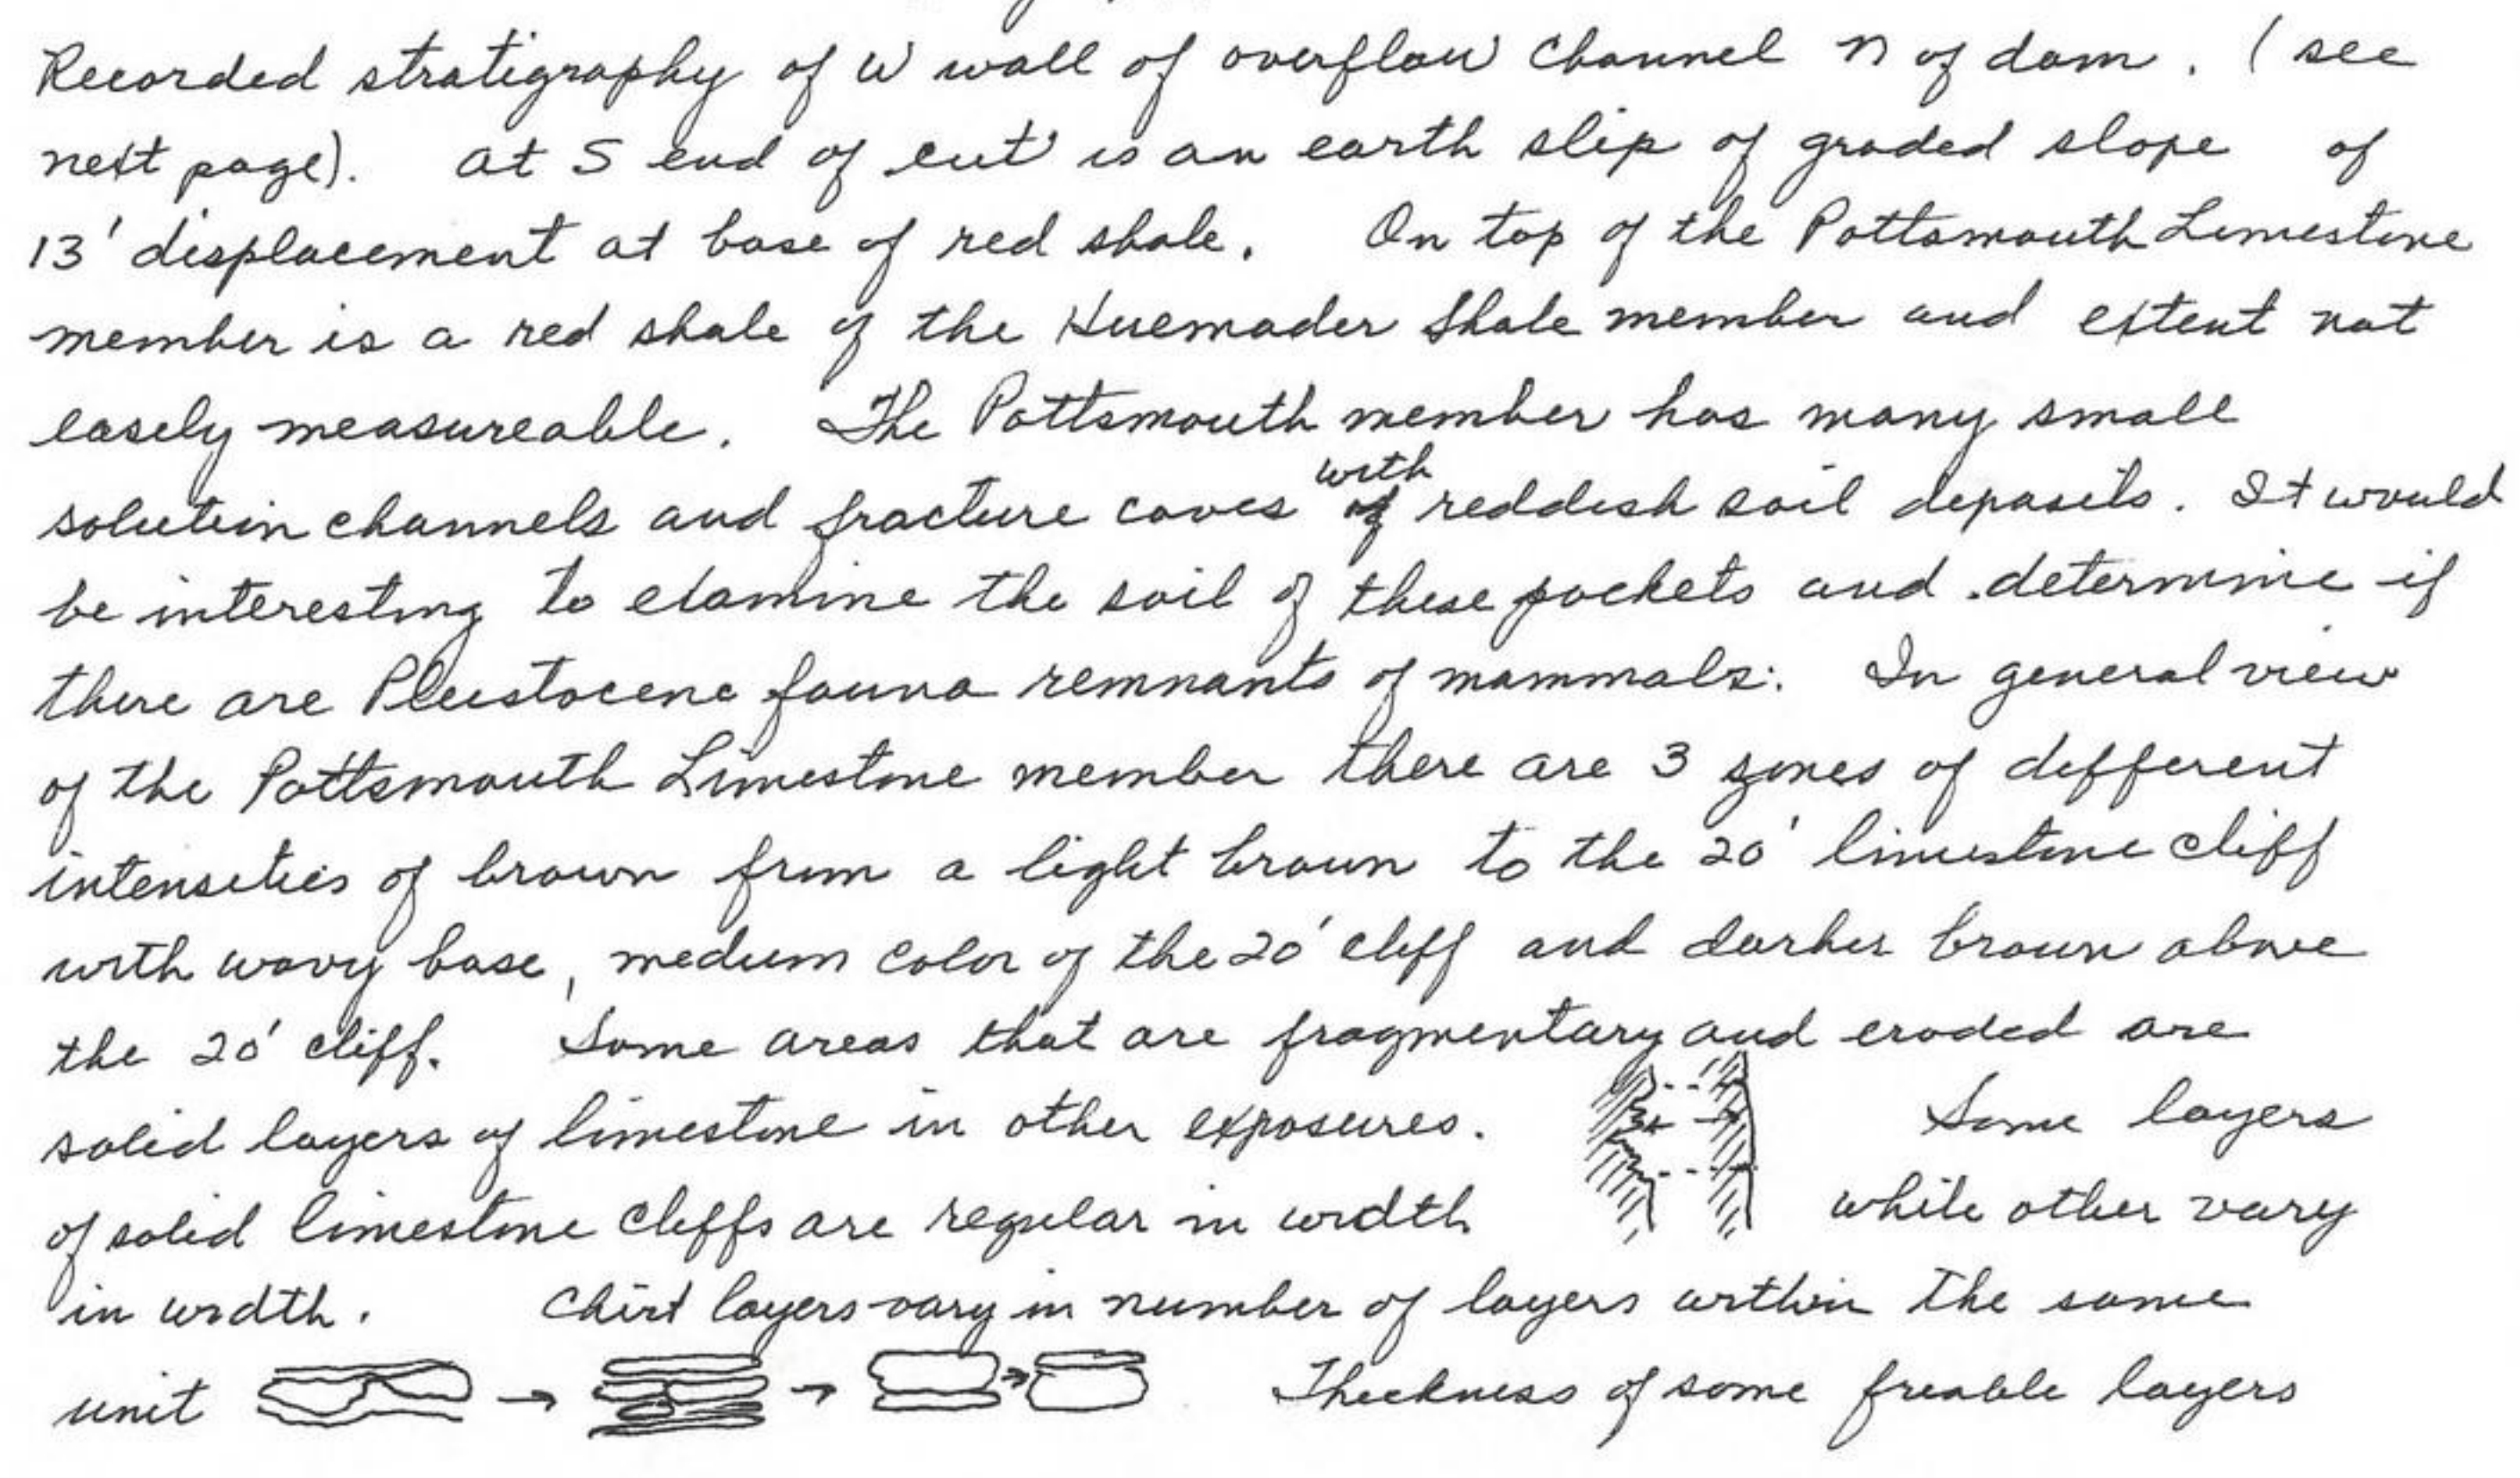 Recorded stratigraphy of W wall of overflow channel N of dam. (see
next page). At S end of cut is an earth slip of graded slope of
13' displacement at base of red shale. On top of the Plattsmouth Limestone
member is a red shale of the Huemader Shale member and extent not
easily measureable. The Plattsmouth member has many small
solution channels and fracture caves with reddish soil deposits. It would
be interesting to examine the soil of these pockets and determine if
there are Pleistocene fauna remnants of mammals. In general view
of the Plattsmouth Limestone member there are 3 zones of different
intensities of brown from a light brown to the 20' limestone cliff
with wavy base, medium color of the 20' cliff and darker brown above
the 20' cliff. Some areas that are fragmentary and eroded are
solid layers of limestone in other exposures. Some layers
of solid limestone cliffs are regular in width while other vary
in width. Chert layers vary in number of layers within the same
unit → → → Thickness of some freable layers